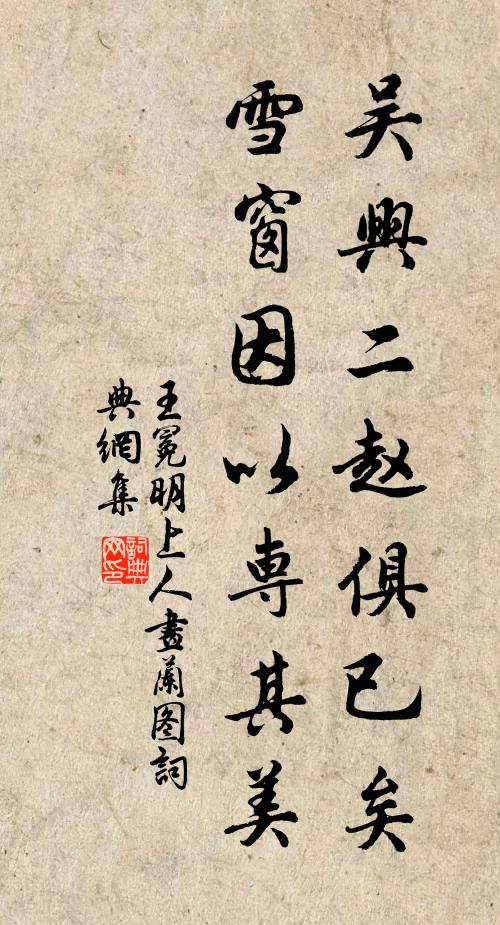 吴興二赵俱已矣
雪窗因以専其美
王冕明上人畫蘭图詞
典網集
詞典
网印